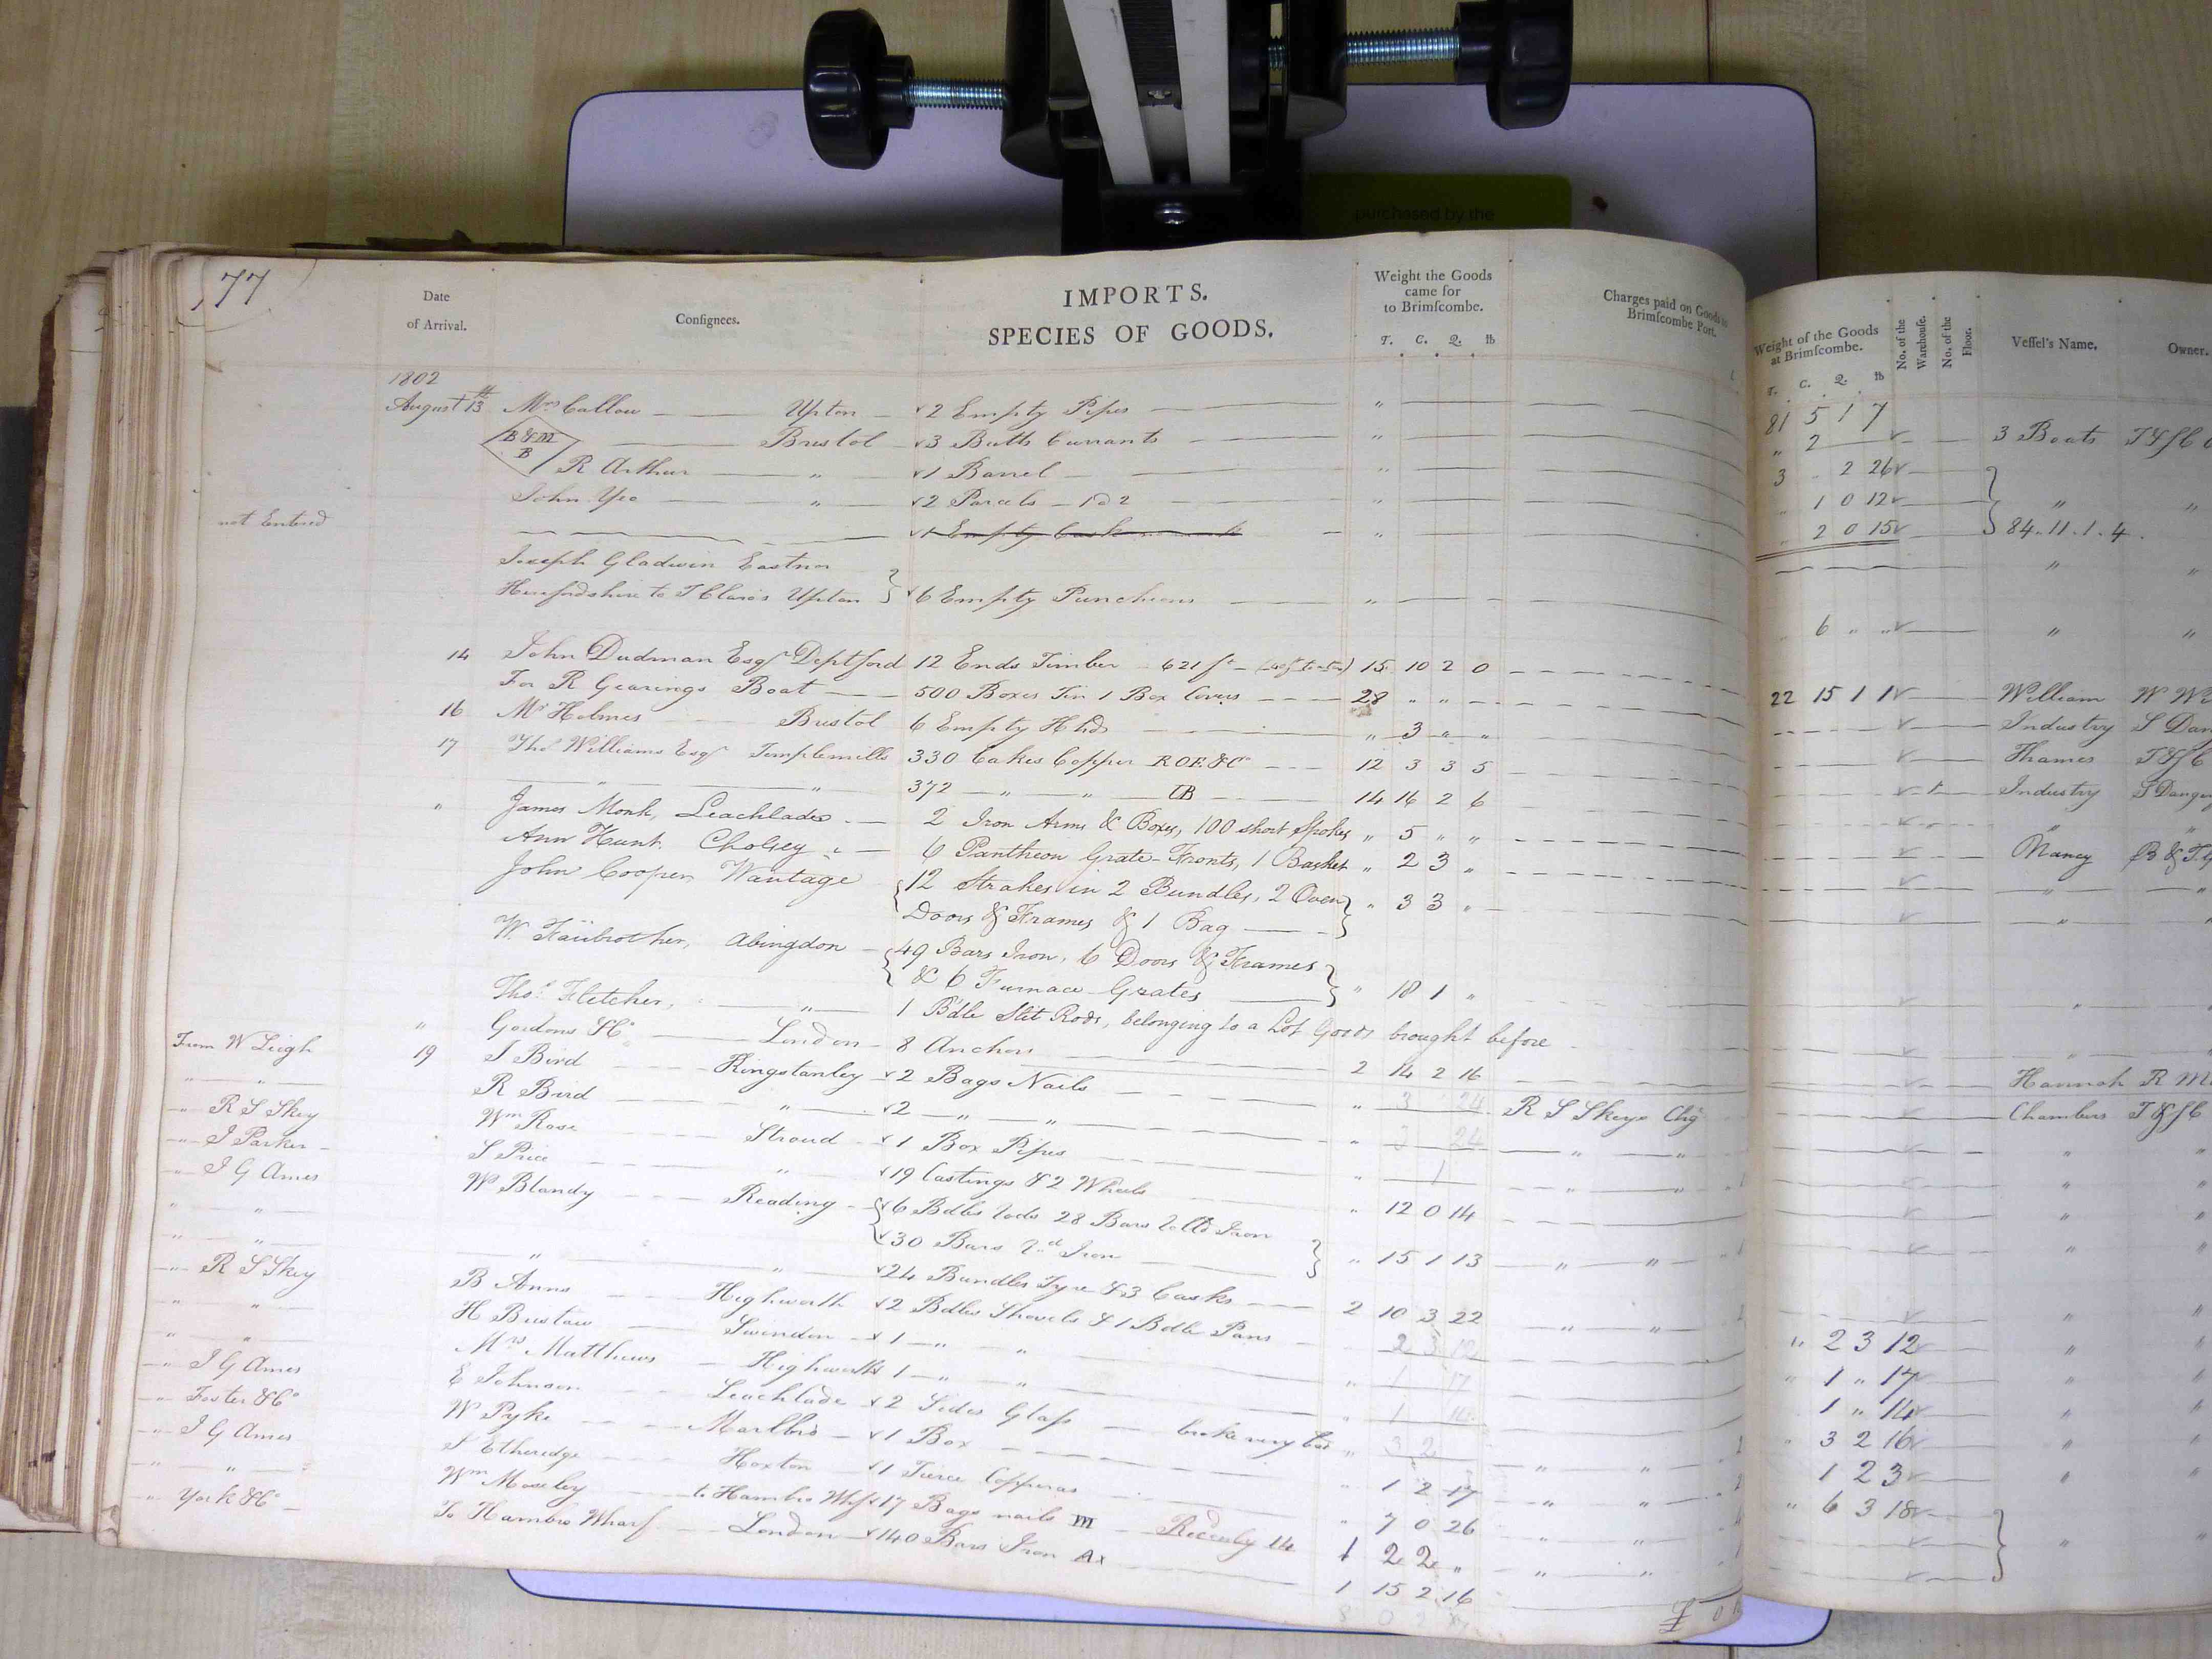 purchased by the
77
Date
of Arrival.
Consignees.
IMPORTS.
SPECIES OF GOODS.
Weight the Goods
came for
to Brimscombe.
T. C. Q. lb
Charges paid on Goods to
Brimscombe Port.
Weight of the Goods
at Brimscombe.
T. C. Q. lb
No. of the Warehouse.
No. of the Floor.
Vessel's Name,
Owner.
1802
81 5 1 7
August 13th Mrs Callow Upton 2 Empty Pipes " " 2 3 Boats
B & M B Bristol 3 Butts Currants " 3 " 2 26
R Arthur " 1 Barrel " " 1 0 12 " "
John Yeo " 2 Parcels 1 & 2 " " 2 0 15 84.11.1.4.
not Entered 1 Empty Cask " " "
Joseph Gladwin Eastnor
Herefordshire to T Clarks Upton 6 Empty Puncheons " " 6 " " " "
14 John Dudman Esqr Deptford 12 Ends Timber 621 ft 15 10 2 0 22 15 1 1 William W
For R Gearings Boat 500 Boxes Tin 1 Box Covers 28 " " Industry S Dan
16 Mr Holmes Bristol 6 Empty Hhds " 3 " " Thames
17 Thos Williams Esqr Templemills 330 Cakes Copper ROE&Co 12 3 3 5 Industry S Dange
" " 372 " " 14 16 2 6 " "
" James Monk, Leachlade 2 Iron Arms & Boxes, 100 short Spokes " 5 " " Nancy
Ann Hunt Cholsey 6 Pantheon Grate-Fronts, 1 Basket " 2 3 " " "
John Cooper Wantage 12 Strakes in 2 Bundles, 2 Oven " 3 3 " " "
Doors & Frames & 1 Bag
W. Fairbrother, Abingdon 49 Bars Iron, 6 Doors & Frames
& 6 Furnace Grates " 18 1 " " "
Thos Fletcher, " 1 Bdle Slit Rods, belonging to a Lot Goods brought before " "
" Gordons & Co London 8 Anchors 2 14 2 16 Hannah R M
From W Leigh 19 J Bird Kingstanley 2 Bags Nails " 3 24 R S Skeys Chg Chambers
" " R Bird " 2 " " " 3 24 " " " "
" R S Skey Wm Rose Stroud 1 Box Pipes " 1 " " " "
" J Parker S Price " 19 Castings & 2 Wheels " 12 0 14 " "
" J G Ames W Blandy Reading 6 Bdles Rods 28 Bars Iron
" " 30 Bars Iron " 15 1 13 " "
" " " " 24 Bundles Tyre & 3 Casks 2 10 3 22 " " " "
" R S Skey B Anns Highworth 2 Bdles Shovels & 1 Bdle Pans 2 3 12 " 2 3 12 " "
" " H Bustow Swindon 1 " " " 1 17 " 1 " 17 " "
" " Mrs Matthews Highworth 1 " " " 1 14 1 " 14 " "
" J G Ames E Johnson Leachlade 2 Sides Glass broke very bad " 3 2 " " " 3 2 16 " "
" Foster & Co W Pyke Marlbro 1 Box " 1 2 17 " " 1 2 3 " "
" J G Ames S Etheredge Hoxton 1 Tierce Copperas " 7 0 26 " " " 6 3 18
" " Wm Moseley to Hambro Whf 17 Bags nails M 1 2 2 " " " " "
" York & Co To Hambro Wharf London 140 Bars Iron 1 15 2 16
£ 0